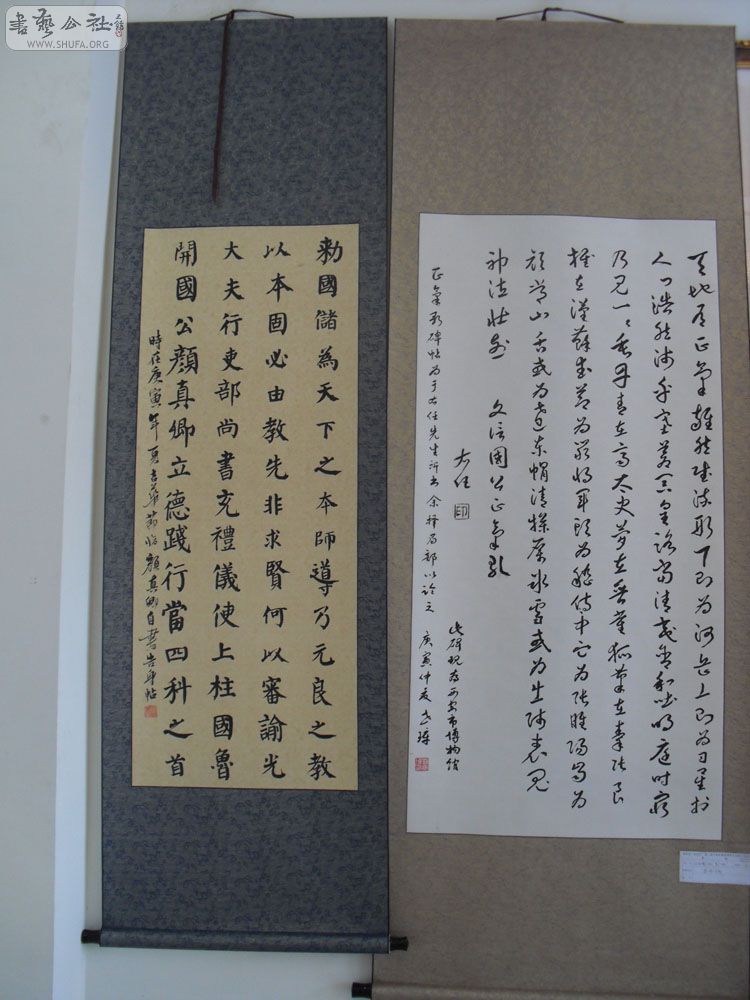 天地有正氣雜然賦流形下則為河岳上則為日星於
人曰浩然沛乎塞蒼冥皇路當清夷含和吐明庭時窮
乃見一一垂丹青在齊太史簡在晉董狐筆在秦張良
椎在漢蘇武節為嚴將軍頭為嵇侍中血為張睢陽齒為
顏常山舌或為遼東帽清操厲冰雪或為出師表鬼
神泣壯烈 文信國公正氣歌
右任 印
此碑現存西安市博物館
正氣歌碑帖為于右任先生所書余擇局部以臨之 庚寅仲夏
勅國儲為天下之本師導乃元良之教
以本固必由教先非求賢何以審諭光
大夫行吏部尚書充禮儀使上柱國魯
開國公顏真卿立德踐行當四科之首
時在庚寅年夏吉 臨顏真卿自書告身帖
書藝公社
WWW.SHUFA.ORG